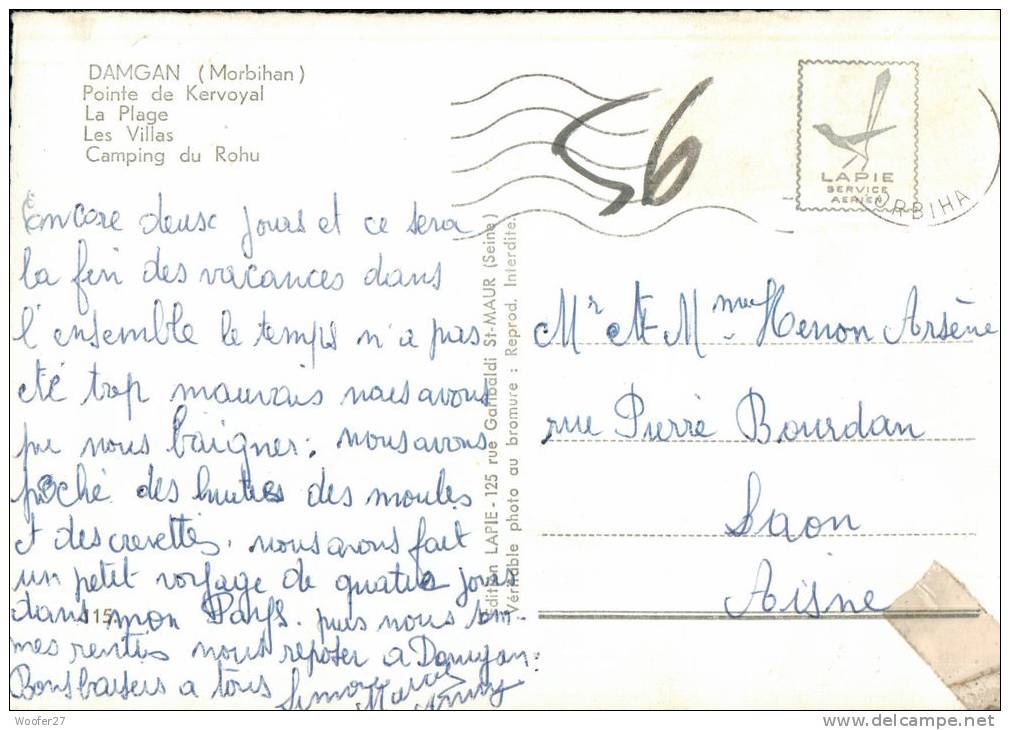 DAMGAN (Morbihan)
Pointe de Kervoyal
La Plage
Les Villas
Camping du Rohu
56
LAPIE
SERVICE
AERIEN
ORBIHA
Encore deux jours et ce sera
la fin des vacances dans
l'ensemble le temps n'a pas
été trop mauvais nous avons
pu nous baigner; nous avons
pêché des huitres des moules
et des crevettes. nous avons fait
un petit voyage de quatre jours
dans mon Pays. puis nous som-
mes rentrés nous reposer a Damgan.
Bons baisers a tous Simone Marcel
115
Edition LAPIE - 125 rue Garibaldi St-MAUR (Seine)
Véritable photo au bromure : Reprod. Interdite.
Mr et Mme Henon Arsène
rue Pierre Bourdan
Laon
Aisne
Woofer27
delcampe.net